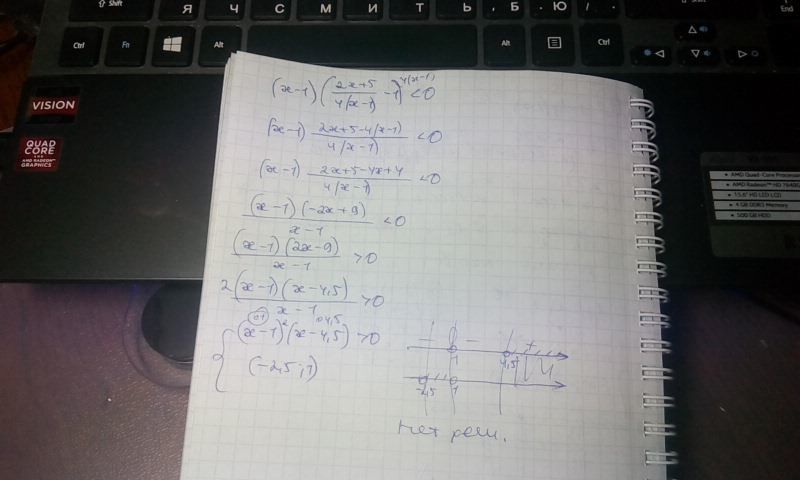 Shift Я Ч С М И Т Ь Б Ю Shift End
Ctrl Fn Alt Alt Ctrl
VISION
QUAD CORE
AMD RADEON™ HD
GRAPHICS
AMD Quad-Core Processor
AMD Radeon™ HD
15.6" HD LED LCD
4 GB DDR3 Memory
500 GB HDD
(x-1)(2x+5/4(x-1) -1)^4(x-1) <0
(x-1) 2x+5-4(x-1)/4(x-1) <0
(x-1) 2x+5-4x+4/4(x-1) <0
(x-1)(-2x+9)/x-1 <0
(x-1)(2x-9)/x-1 >0
2(x-1)(x-4,5)/x-1 >0
(x-1)²(x-4,5)>0
(-2,5;1)
- - +
1 4,5
-2,5 1
Нет реш.